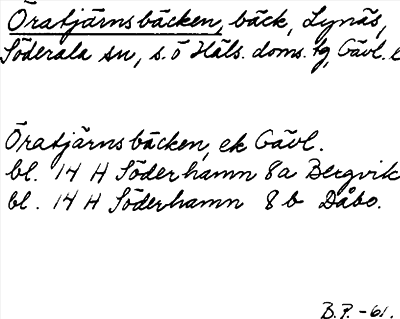 Öratjärnsbäcken, bäck, Lynäs,
Söderala sn, s. ö Häls. doms. tg, Gävl. l
Öratjärnsbäcken, ek Gävl.
bl. 14 H Söderhamn 8a Bergvik
bl. 14 H Söderhamn 8 b Dåbo.
B.P. -61.